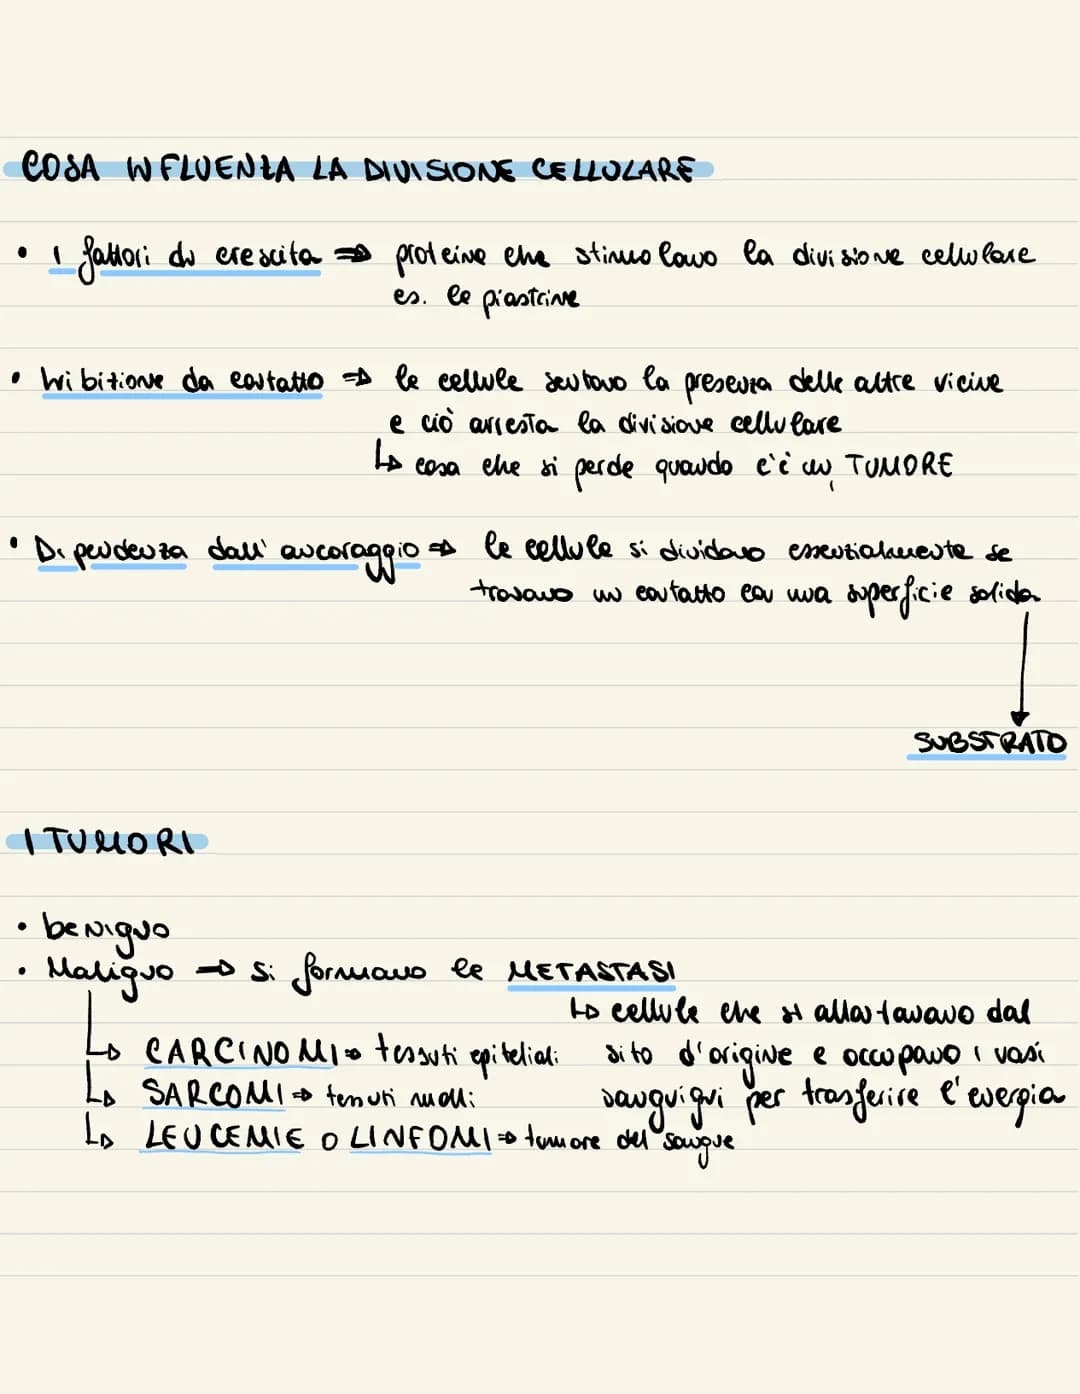 COSA INFLUENZA LA DIVISIONE CELLULARE
• I fattori di crescita ⇒ proteine che stimolano la divisione cellulare
es. le piastrine
• Inibizione da contatto ⇒ le cellule sentono la presenza delle altre vicine
e ciò arresta la divisione cellulare
↳ cosa che si perde quando c'è un TUMORE
• Dipendenza dall'ancoraggio ⇒ le cellule si dividono essenzialmente se
trovano un contatto con una superficie solida
SUBSTRATO
I TUMORI
• benigno
• Maligno → si formano le METASTASI
↳ cellule che si allontanano dal
↳ CARCINOMI → tessuti epiteliali sito d'origine e occupano i vasi
↳ SARCOMI ⇒ tessuti molli sanguigni per trasferire l'energia
↳ LEUCEMIE O LINFOMI ⇒ tumore del sangue